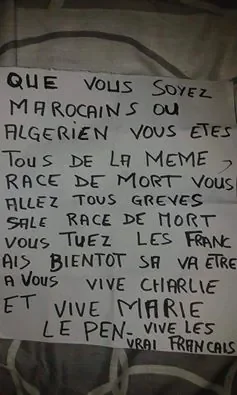 QUE VOUS SOYEZ
MAROCAINS OU
ALGERIEN VOUS ETES
TOUS DE LA MEME
RACE DE MORT VOUS
ALLEZ TOUS GREVES
SALE RACE DE MORT
VOUS TUEZ LES FRANC
AIS BIENTOT SA VA ETRE
A VOUS VIVE CHARLIE
ET VIVE MARIE
LE PEN - VIVE LES
VRAI FRANCAIS